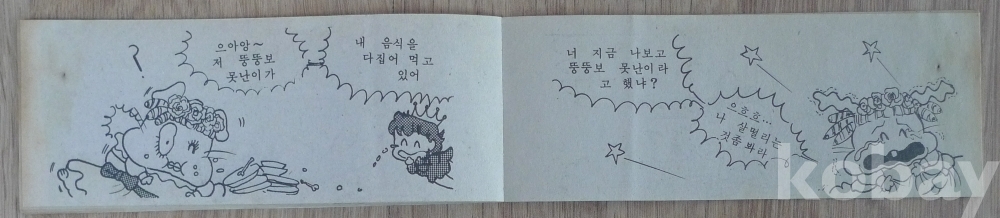 으아앙~
저 뚱뚱보
못난이가
내 음식을
다집어 먹고
있어
?
너 지금 나보고
뚱뚱보 못난이라
고 했냐?
으흐흐...
나 살떨리는
것좀 봐라
kobay